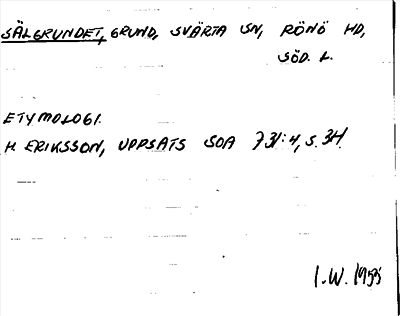 SÄLGRUNDET, GRUND, SVÄRTA SN, RÖNÖ HD,
SÖD. L.
ETYMOLOGI.
H ERIKSSON, UPPSATS SOA 731:4, S. 34.
I.W. 1955